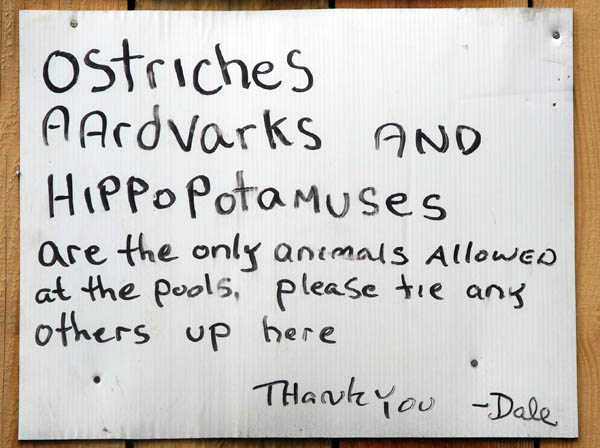 Ostriches
AArdvarks AND
Hippopotamuses
are the only animals Allowed
at the pools, please tie any
others up here
Thank You -Dale